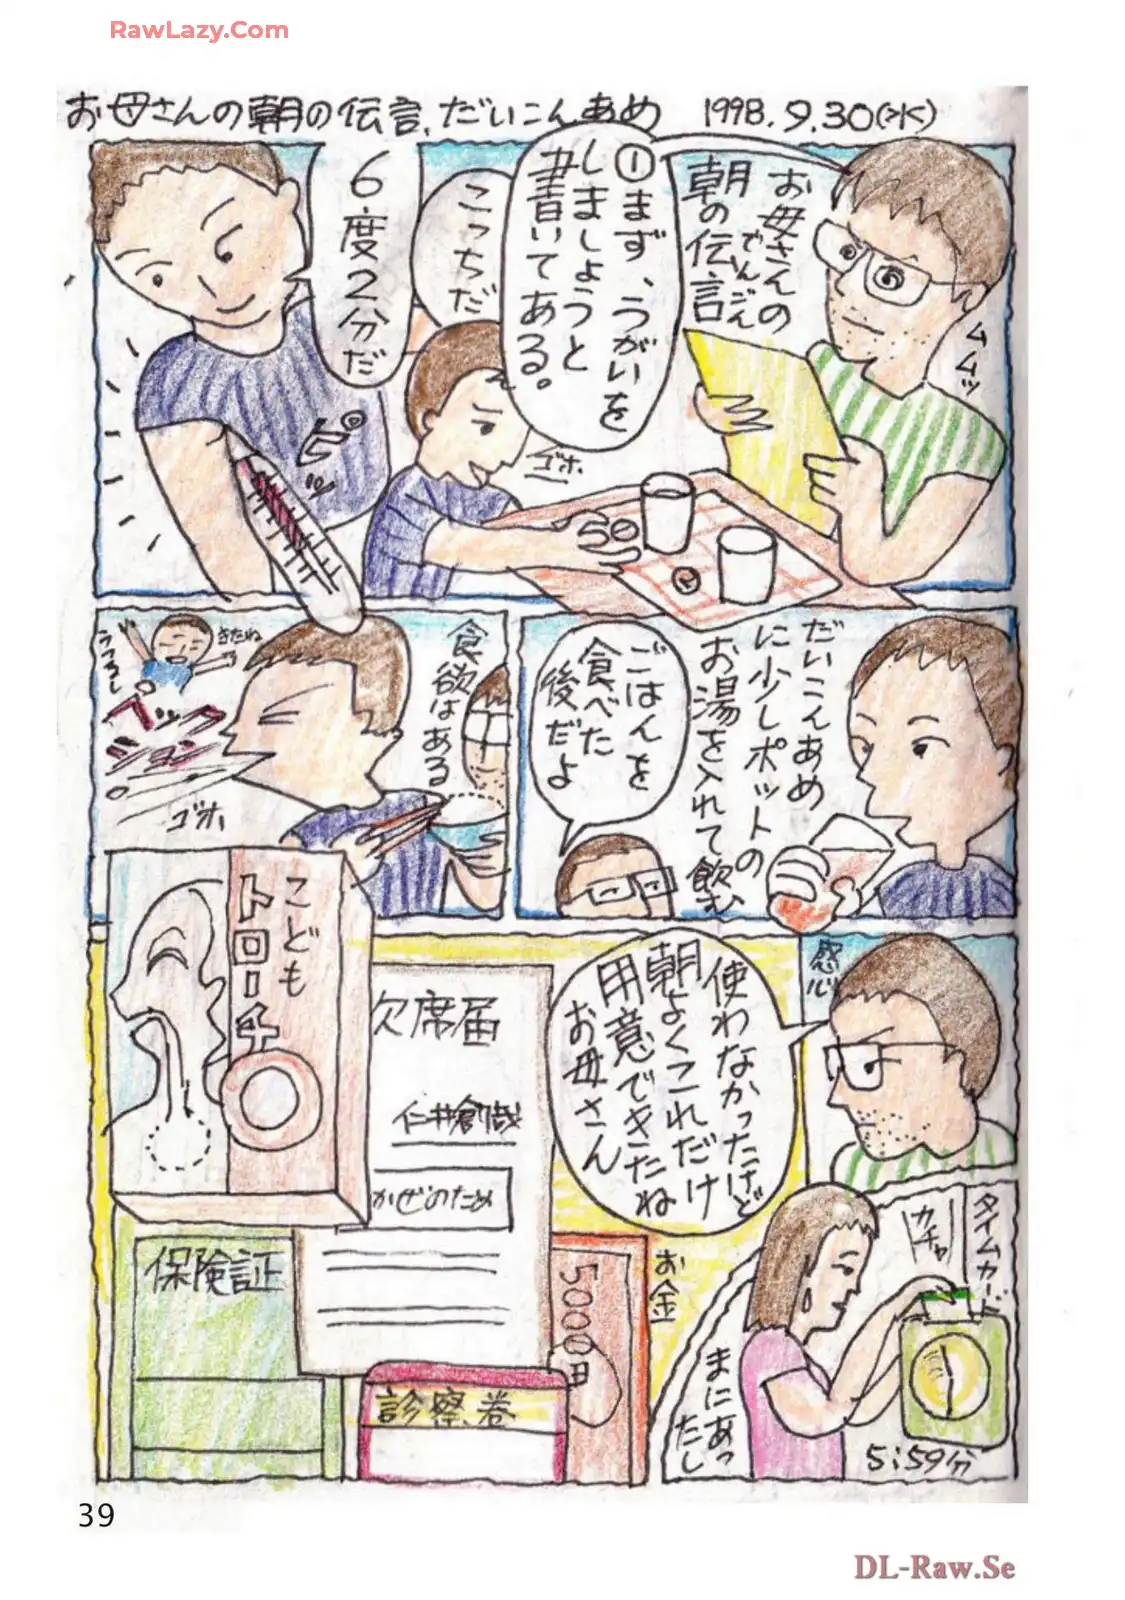 RawLazy.Com
お母さんの朝の伝言、だいこんあめ 1998.9.30(水)
お母さんの
朝の伝言
でんごん
ムムッ
①まず、うがいを
しましょうと
書いてある。
こっちだ
6度2分だ
ピッ
ゴホ
だいこんあめ
に少しポットの
お湯を入れて飲む
ごはんを
食べた
後だよ
食欲はある
きたね
うつるし
ハックション
ゴホ
感心
使わなかったけど
朝よくこれだけ
用意できたね
お母さん
こども
トローチ
欠席届
仁井創哉
かぜのため
保険証
診察券
5000円
お金
タイムカード
カチャ
まにあっ
たし
5:59分
39
DL-Raw.Se